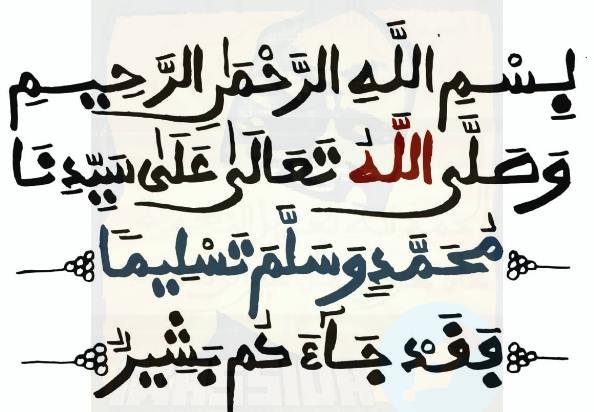 بِسْمِ اللَّهِ الرَّحْمَٰنِ الرَّحِيمِ
وَصَلَّى اللَّهُ تَعَالَىٰ عَلَىٰ سَيِّدِنَا
مُحَمَّدٍ وَسَلَّمَ تَسْلِيمَا
فَقَدْ جَآءَكُم بَشِيرٌ